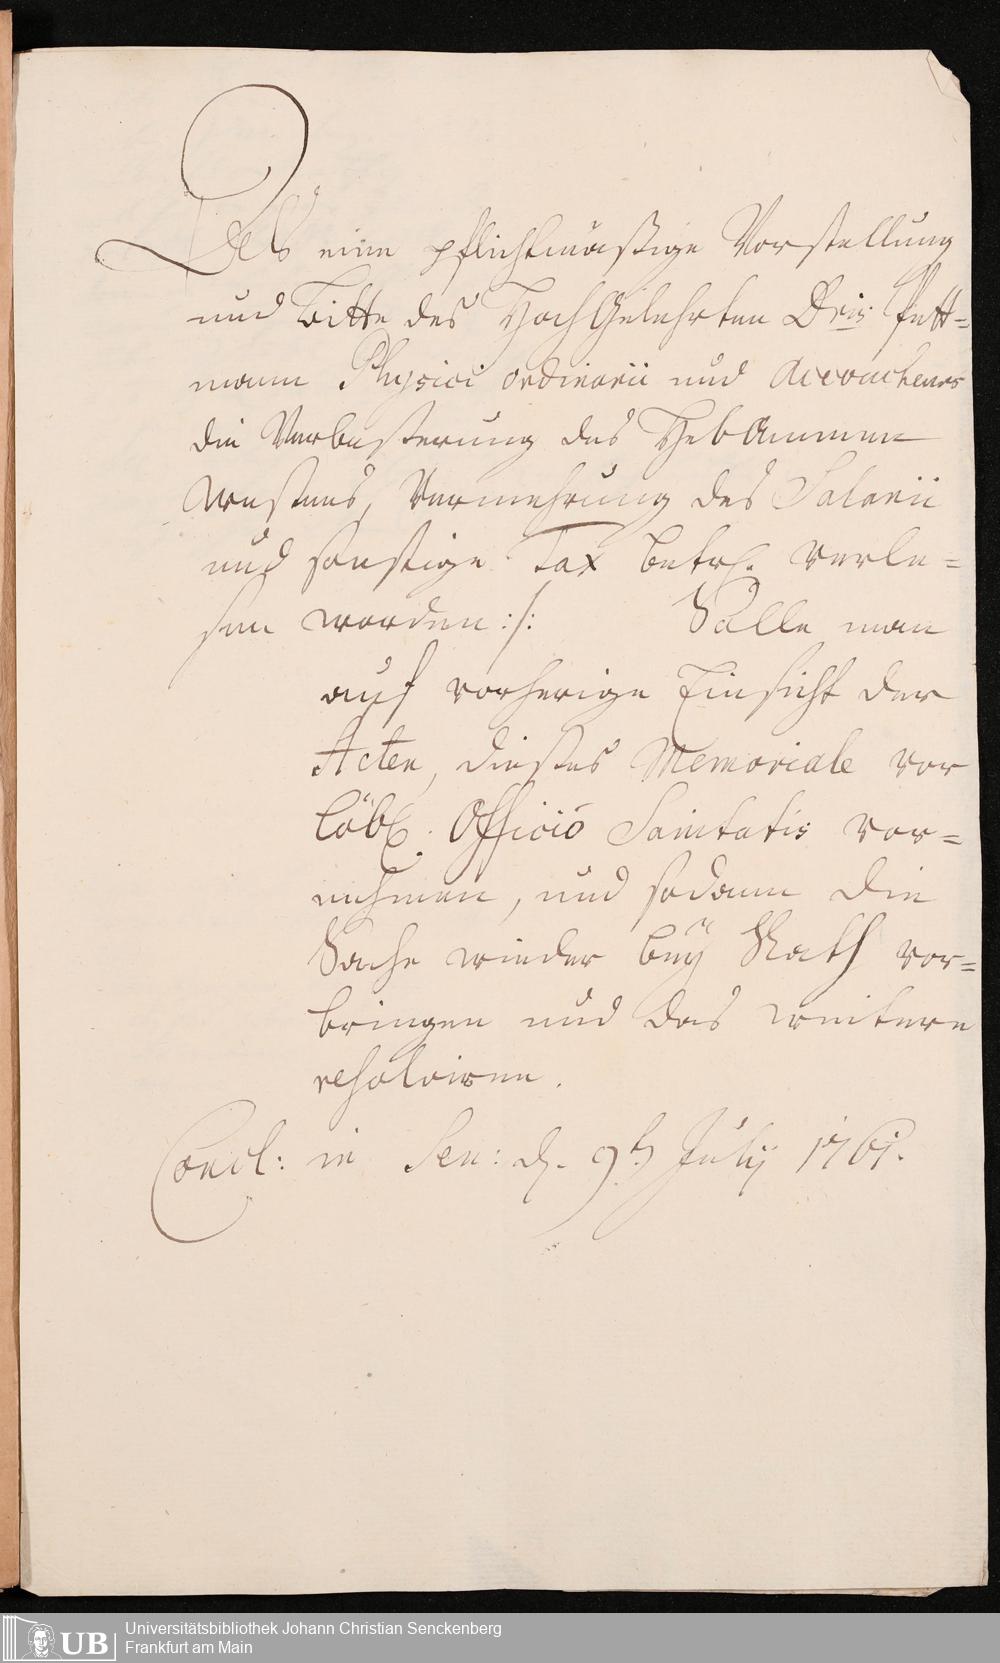 Als eine pflichtmäßige Vorstellung
und Bitte des HochGelehrten Dris: Pett=
mann Physici ordinarii und Accoucheurs
die Verbeßerung des HebAmmen
Weßens, Vermehrung des Salarii
und sonstige Tax betrf. verle=
sen worden :/: Solle man
auf vorherige Einsicht der
Acten, dießes Memoriale vor
Löbl. Officio Sanitatis vor=
nehmen, und sodann die
Sache wieder bey Rath vor=
bringen und das weitere
resolviren.
Concl: in Sen: d. 9t. July 1761.
Universitätsbibliothek Johann Christian Senckenberg
Frankfurt am Main
UB